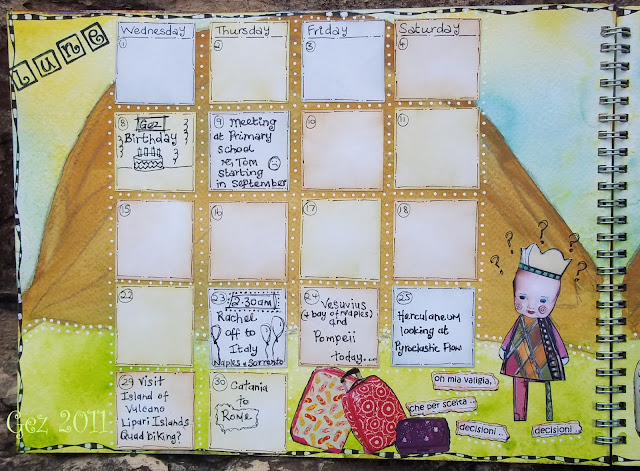 JUNE
Wednesday Thursday Friday Saturday
1 2 3 4
8
Gez
Birthday
9 Meeting
at Primary
School
re; Tom
starting
in September
10
11
15 16 17 18
22
23 2.30am
Rachel
off to
Italy
Naples & Sorrento
24
Vesuvius
(+ bay of Naples)
and
Pompeii
today...
25
Herculaneum
looking at
Pyroclastic Flow
29 Visit
Island of
Vulcano
Lipari Islands
Quad biking?
30 Catania
to
ROME
? ? ? ? ?
oh mia valigia,
che per scelta..
decisioni..
decisioni..
Gez 2011